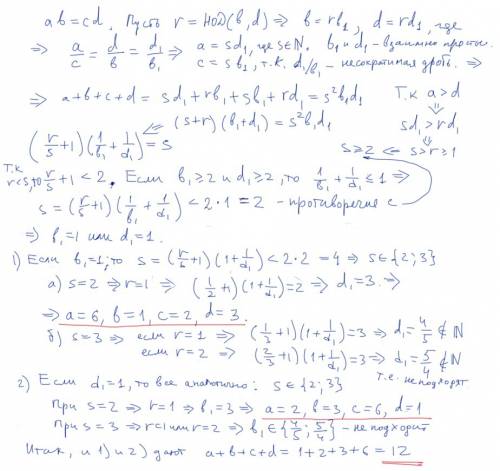 ab=cd. Пусть r=НОД(b,d) ⇒ b=rb₁, d=rd₁, где
⇒ a/c = d/b = d₁/b₁ ⇒ a=sd₁, где s∈ℕ. b₁ и d₁ - взаимно просты.
c=sb₁, т.к. d₁/b₁ - несократимая дробь. ⇒
⇒ a+b+c+d = sd₁+rb₁+sb₁+rd₁ = s²b₁d₁
Т.к a>d
⇓
(s+r)(b₁+d₁)=s²b₁d₁
sd₁>rd₁
⇓
(r/s+1)(1/b₁+1/d₁)=s ⇐
s≥2 ⇐ s>r≥1
Т.к r<s, то r/s+1<2. Если b₁≥2 и d₁≥2, то 1/b₁+1/d₁≤1 ⇒
s=(r/s+1)(1/b₁+1/d₁)<2·1=2 - противоречие с
⇒ b₁=1 или d₁=1.
1) Если b₁=1, то s=(r/s+1)(1+1/d₁)<2·2=4 ⇒ s∈{2;3}
а) s=2 ⇒ r=1 ⇒ (1/2+1)(1+1/d₁)=2 ⇒ d₁=3. ⇒
⇒ a=6, b=1, c=2, d=3.
б) s=3 ⇒ если r=1 ⇒ (1/3+1)(1+1/d₁)=3 ⇒ d₁=4/5 ∉ ℕ
если r=2 ⇒ (2/3+1)(1+1/d₁)=3 ⇒ d₁=5/4 ∉ ℕ
т.е. не подходят
2) Если d₁=1, то все аналогично: s∈{2;3}
При s=2 ⇒ r=1 ⇒ b₁=3 ⇒ a=2, b=3, c=6, d=1
При s=3 ⇒ r=1 или r=2 ⇒ b₁∈{4/5; 5/4} - не подходит
Итак, и 1) и 2) дают a+b+c+d=1+2+3+6=12